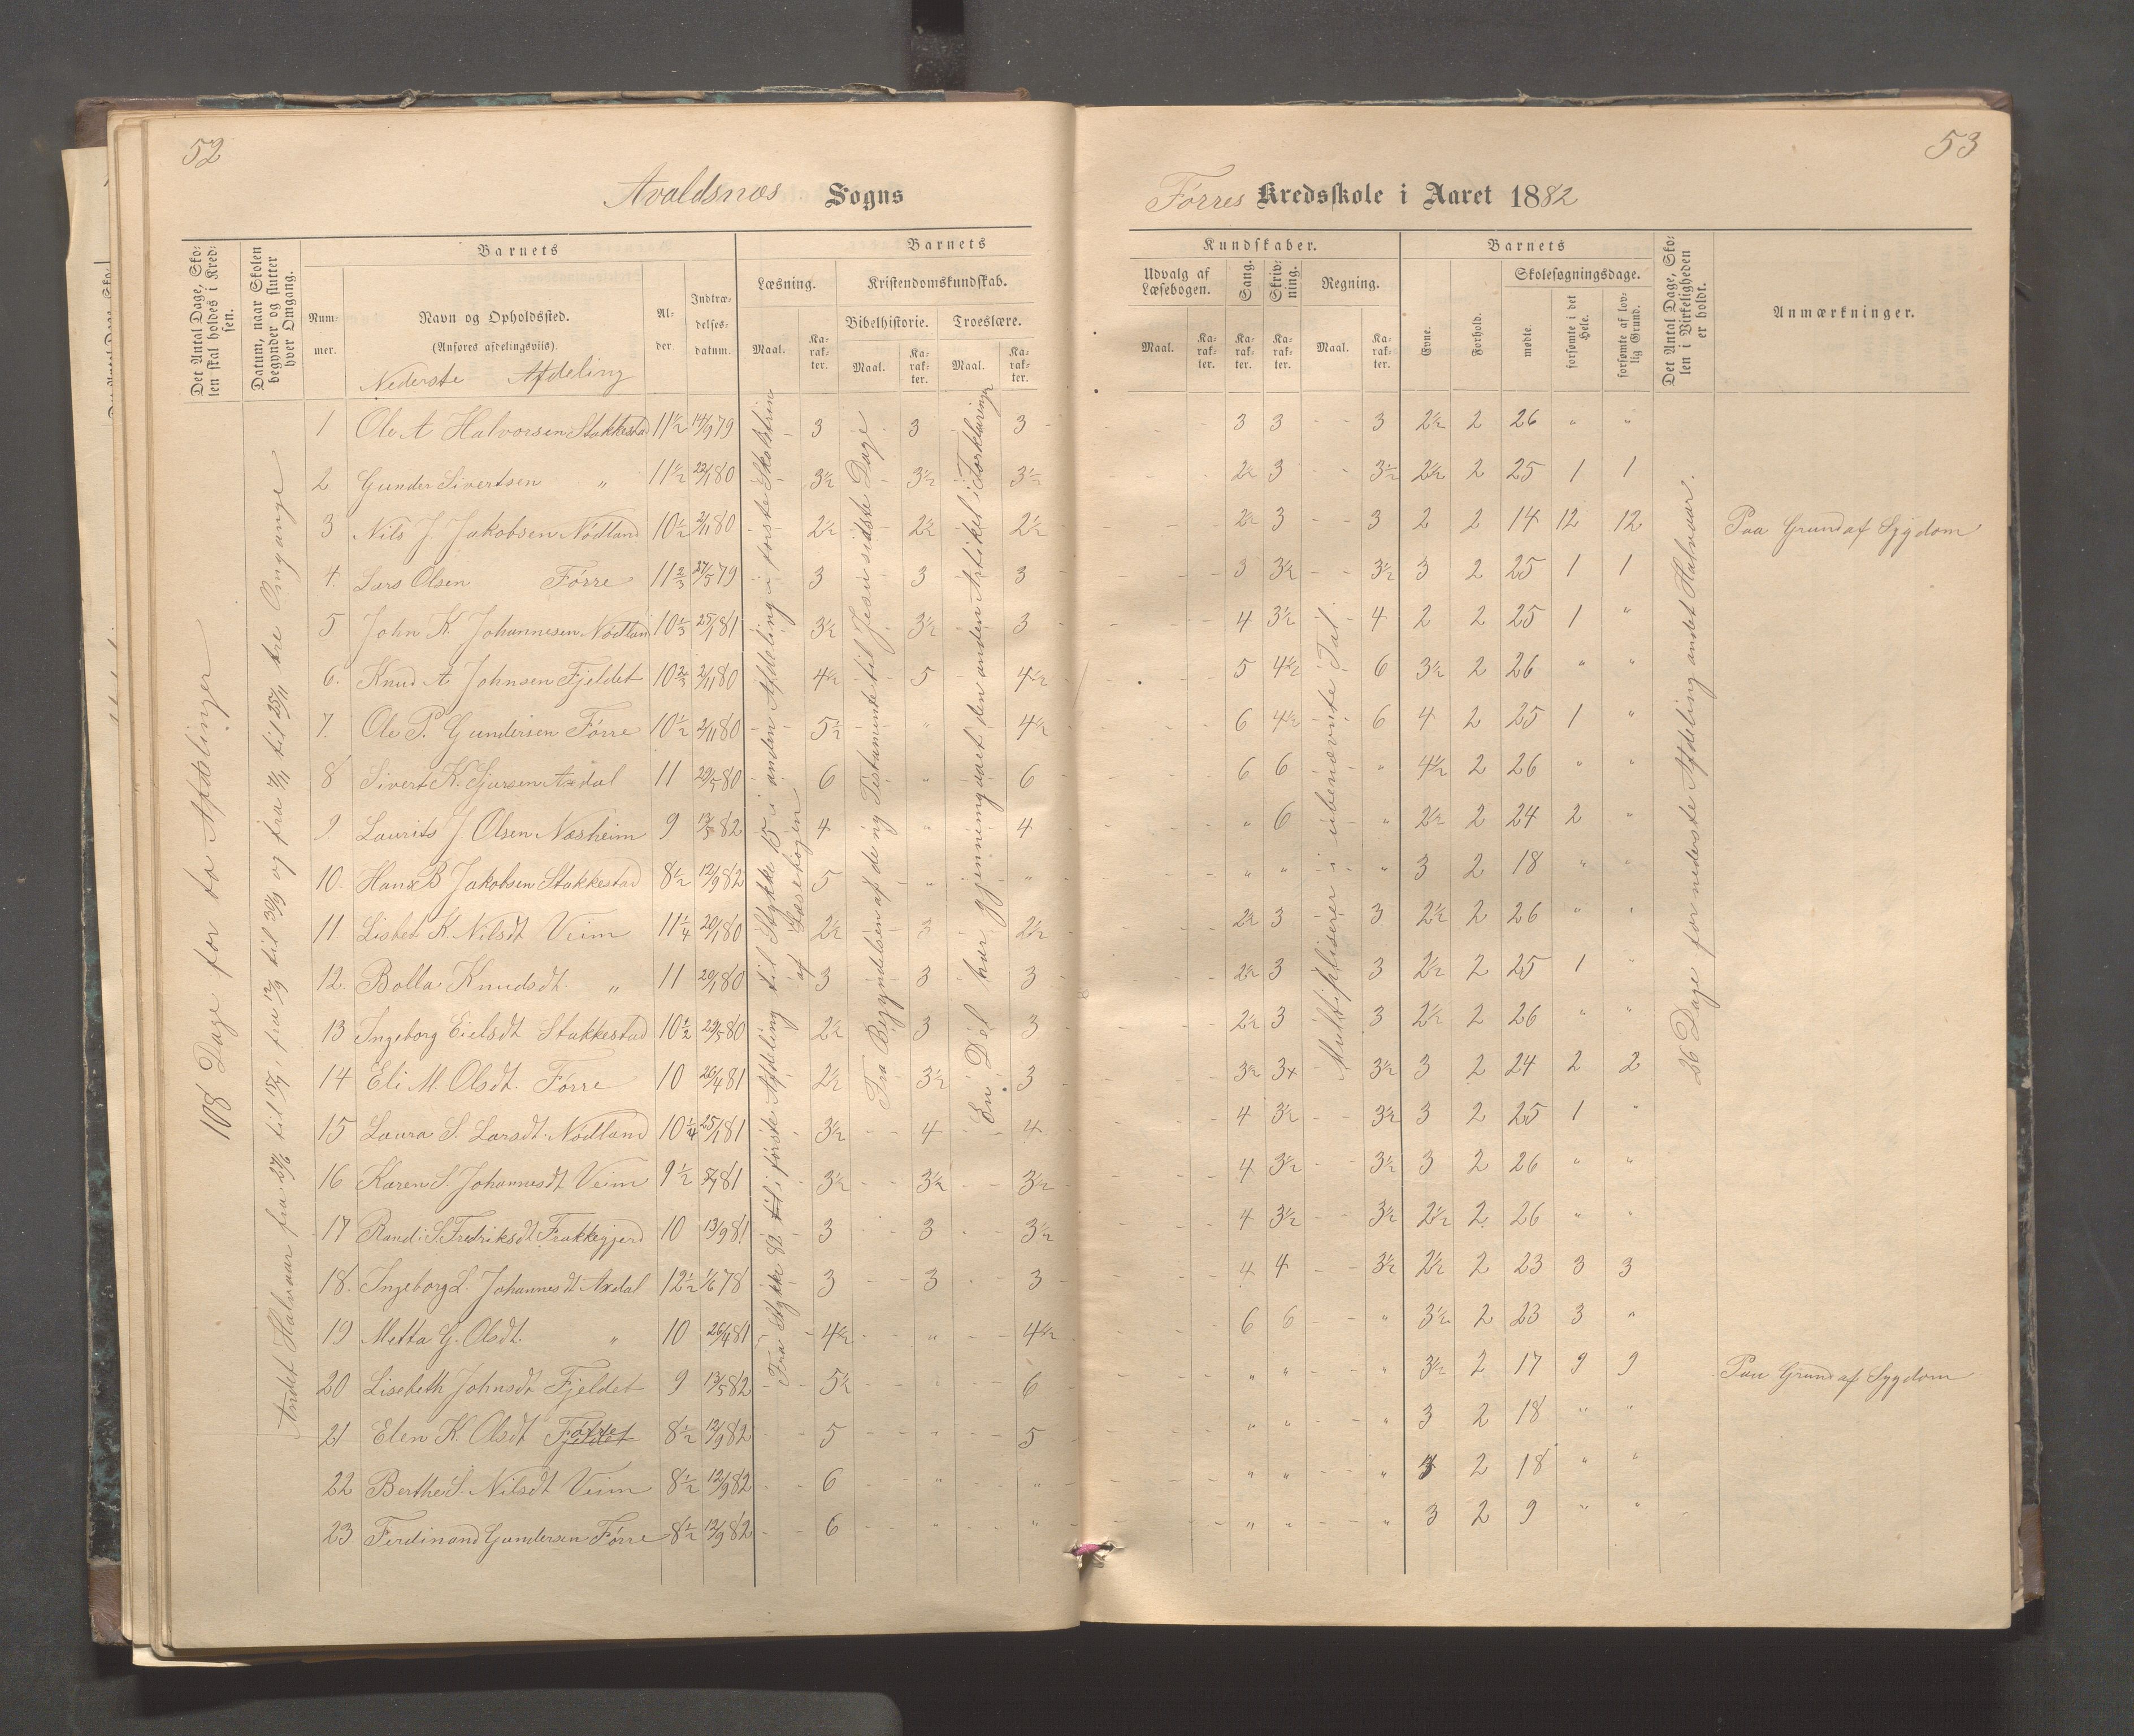 52
Avaldsnæs Sogns
Det Antal Dage, Skolen skal holdes i Kredsen.
Datum, naar Skolen begynder og slutter hver Omgang.
Barnets
Nummer.
Navn og Opholdssted.
(Anføres afdelingsviis).
Alder.
Indtrædelsesdatum.
Barnets
Læsning.
Kristendomskundskab.
Bibelhistorie.
Troeslære.
Maal.
Karakter.
Maal.
Karakter.
Maal.
Karakter.
Nederste Afdeling
108 Dage for to Afdelinger
Andet Halvaar fra 27/6 til 15/7, fra 12/9 til 30/9 og fra 7/11 til 25/11 tre Omgange
Fra Stykke 82 i første Afdeling til Stykke 15 i anden Afdeling i første Skoletrin
af Læsebogen
Fra Begyndelsen af de ny Testamente til Jesu sidste Dage
En Del har gjennemgaaet den anden Artikel i Forklaringen
1 Ole A Halvorsen Stakkestad 11½ 14/9 79 - 3 - 3 - 3 -
2 Gunder Sivertsen " 11½ 22/1 80 - 3½ - 3½ - 3½
3 Nils J. Jakobsen Nødland 10½ 2/11 80 - 2½ - 2½ - 2½
4. Lars Olsen Førre 11⅔ 27/5 79 - 3 - 3 - 3
5 John K. Johannesen Nødland 10⅓ 25/1 81 - 3½ - 3½ - 3
6. Knud A Johnsen Fjeldet 10⅔ 2/11 80 - 4½ - 5 - 4½
7. Ole P. Gundersen Førre 10½ 2/11 80 - 5½ - " - 4½
8 Sivert K. Sjursen Axdal 11 29/5 80 - 6 - " - 6
9. Laurits J. Olsen Næsheim 9 13/5 82 - 4 - " - 4
10. Hans B Jakobsen Stakkestad 8½ 12/9 82 - 5 - " - "
11. Lisbet K. Nilsdt Veim 11¼ 20/1 80 - 2½ - 3 - 2½
12. Bolla Knudsdt. " 11 20/1 80 - 3 - 3 - 3
13 Ingeborg Eielsdt Stakkestad 10½ 29/5 80 - 2½ - 3 - 3
14 Eli M. Olsdt. Førre 10 26/4 81 - 2½ - 3½ - 3
15 Laura S. Larsdt. Nødland 10¼ 25/1 81 - 3½ - 4 - 4
16 Karen S. Johannesdt Veim 9½ 81 - 3½ - 3½ - 3½
17 Randi S. Fredriksdt Frakkegjerd 10 13/9 81 - 3 - 3 - 3½
18. Ingeborg L. Johannesdt Axdal 12½ 1/6 78 - 3 - 3 - 3
19 Metta G. Olsdt. " 10 26/4 81 - 4½ - " - 4½
20 Lisebeth Johnsdt Fjeldet 9 13/5 82 - 5½ - " - 6
21 Elen K. Olsdt Førre 8½ 12/9 82 - 5 - " - 5
22 Berthe S. Nilsdt Veim 8½ 12/9 82 - 6 - " - "
23. Ferdinand Gundersen Førre 8½ 12/9 82 - 6 - " - "
53
Førres Kredsskole i Aaret 1882
Kundskaber.
Udvalg af Læsebogen.
Sang.
Skrivning.
Regning.
Maal.
Karakter.
Karakter.
Karakter.
Maal.
Karakter.
Barnets
Evne.
Forhold.
Skolesøgningsdage.
mødte.
forsømte i det Hele.
forsømte af lovlig Grund.
Det Antal Dage, Skolen i Virkeligheden er holdt.
Anmærkninger.
Multipliserer i ubenævnte Tal
26 Dage for nederste Afdeling andet Halvaar.
- - 3 3 - - 3 2½ 2 26 " "
- 2½ 3 - - 3½ 2½ 2 25 1 1
- - 2½ 3 - - 3 2 2 14 12 12 Paa Grund af Sygdom
- - 3 3½ - - 3½ 3 2 25 1 1
- - 4 3½ - 4 2 2 25 1 "
5 4½ 6 3½ 2 26 " "
- - 6 4½ - 6 4 2 25 1 "
- - 6 6 - " 4½ 2 26 " "
- - " 6 - " 2½ 2 24 2 "
- - " " - " 3 2 18 " "
- - 2½ 3 - 3 2½ 2 26 " "
- - 2½ 3 3 2½ 2 25 1 "
- - 2½ 3 3 2½ 2 26 " "
- - 3½ 3x - 3½ 3 2 24 2 2
- - 4 3½ - - 3½ 3 2 25 1 "
- - 4 3½ - - 3½ 3 2 26 " "
- - 4 3½ - - 3½ 2½ 2 26 " "
- - 4 4 - - 3½ 2½ 2 23 3 3
- - 6 6 - - " 3½ 2 23 3 "
- - " " - - " 3½ 2 17 9 9 Paa Grund af Sygdom
- - " " - - " 3 2 18 " "
- - " " - - " 2 18 " "
- - " " - - " 3 2 9 " "